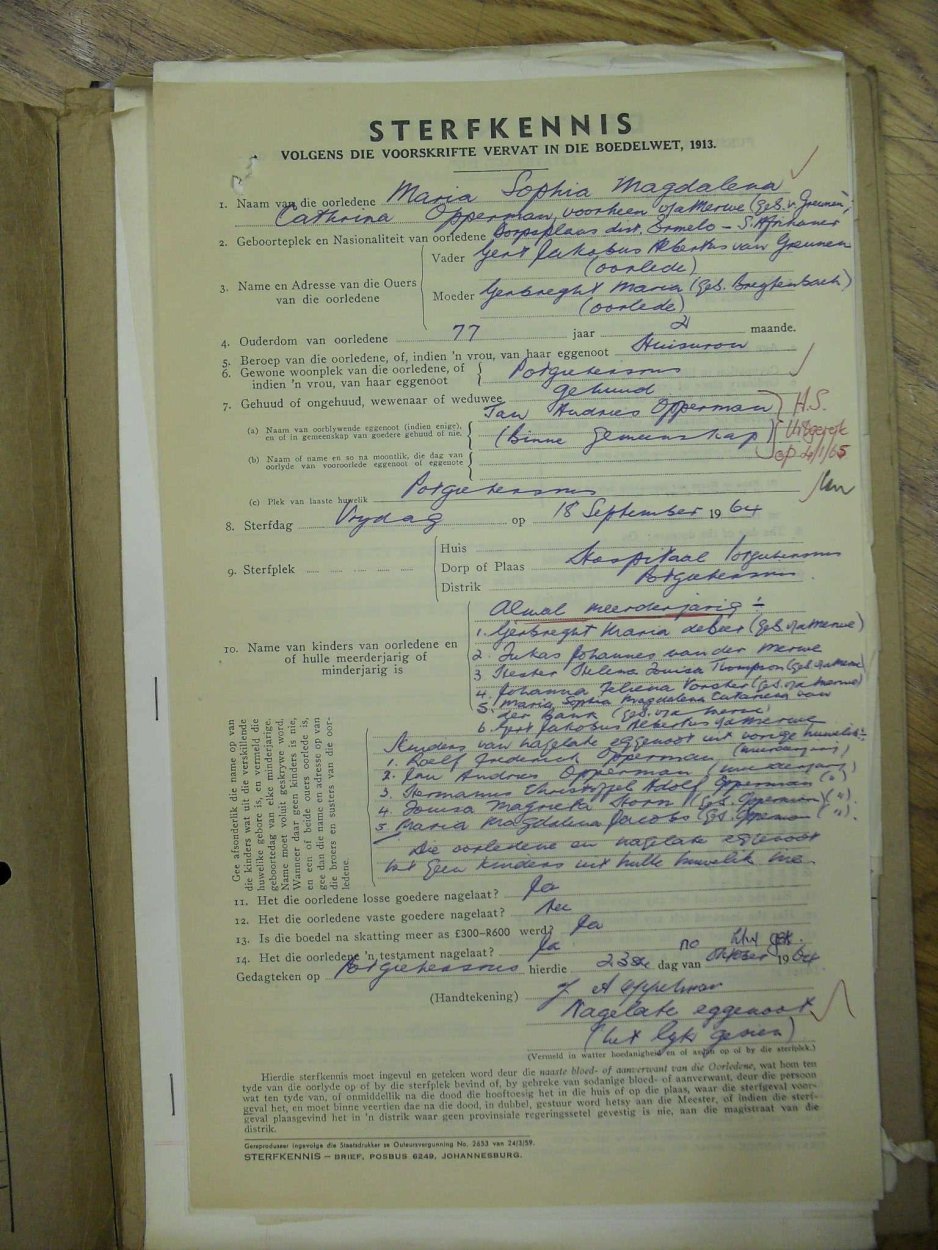 STERFKENNIS
VOLGENS DIE VOORSKRIFTE VERVAT IN DIE BOEDELWET, 1913.
1. Naam van die oorledene Maria Sophia Magdalena
Cathrina Opperman, voorheen v/d Merwe (Geb. v. Greunen)
2. Geboorteplek en Nasionaliteit van oorledene dist. Ermelo - S. Afrikaner
3. Name en Adresse van die Ouers van die oorledene
Vader Gert Jakobus Albertus van Greunen
(oorlede)
Moeder Gerbreght Maria (Geb. Breytenbach)
(oorlede)
4. Ouderdom van oorledene 77 jaar 2 maande.
5. Beroep van die oorledene, of, indien 'n vrou, van haar eggenoot Huisvrou
6. Gewone woonplek van die oorledene, of indien 'n vrou, van haar eggenoot Potgietersrus
7. Gehuud of ongehuud, wewenaar of weduwee gehuud
(a) Naam van oorblywende eggenoot (indien enige), en of in gemeenskap van goedere gehuud of nie. Jan Andries Opperman
(Binne Gemeenskap)
H.S.
Uitgereik
op 4/1/65
(b) Naam of name en so na moontlik, die dag van oorlyde van vooroorlede eggenoot of eggenote
(c) Plek van laaste huwelik Potgietersrus
8. Sterfdag Vrydag op 18 September 1964
9. Sterfplek
Huis
Dorp of Plaas Hospitaal Potgietersrus
Distrik Potgietersrus.
10. Name van kinders van oorledene en of hulle meerderjarig of minderjarig is
Almal meerderjarig :-
1. Gerbreght Maria de Beer (Geb. v/d Merwe)
2. Lukas Johannes van der Merwe
3. Hester Helena Louisa Thompson (Geb. v/d Merwe)
4. Johanna Jeliena Vorster (Geb. v/d Merwe)
5. Maria Sophia Magdalena Catariena van
der Bank (Geb. v/d Merwe)
6. Gert Jakobus Albertus v/d Merwe
Kinders van nagelate eggenoot uit vorige huwelik:-
1. Roelf Frederick Opperman (meerderjarig)
2. Jan Andries Opperman (meerderjarig)
3. Hermanus Christoffel Adolf Opperman (")
4. Louisa Magrieta Horn (Geb. Opperman) (").
5. Maria Magdalena Jacobs (Geb. Opperman) (").
Die oorledene en nagelate eggenoot
het geen kinders uit hulle huwelik nie
Gee afsonderlik die name op van
die kinders wat uit die verskillende
huwelike gebore is, en vermeld die
geboortedag van elke minderjarige.
Name moet voluit geskrywe word.
Wanneer daar geen kinders is nie,
en een of beide ouers oorlede is,
gee dan die name en adresse op van
die broers en susters van die oor-
ledene.
11. Het die oorledene losse goedere nagelaat? Ja
12. Het die oorledene vaste goedere nagelaat? Nee
13. Is die boedel na skatting meer as £300–R600 werd? Ja
14. Het die oorledene 'n testament nagelaat? Ja no
Gedagteken op Potgietersrus hierdie 23ste dag van Oktober 1964
(Handtekening) J A Opperman
Nagelate eggenoot
(het lyk gesien)
(Vermeld in watter hoedanigheid en of aan of op of by die sterfplek.)
Hierdie sterfkennis moet ingevul en geteken word deur die naaste bloed- of aanverwant van die Oorledene, wat hom ten
tyde van die oorlyde op of by die sterfplek bevind of, by gebreke van sodanige bloed- of aanverwant, deur die persoon
wat ten tyde van, of onmiddellik na die dood die hooftoesig het in die huis of op die plaas, waar die sterfgeval voor-
geval het, en moet binne veertien dae na die dood, in dubbel, gestuur word hetsy aan die Meester, of indien die sterf-
geval plaasgevind het in 'n distrik waar geen provinsiale regeringssetel gevestig is nie, aan die magistraat van die
distrik.
Gereproduseer ingevolge die Staatsdrukker se Outeursvergunning No. 2653 van 24/3/59.
STERFKENNIS — BRIEF, POSBUS 6249, JOHANNESBURG.